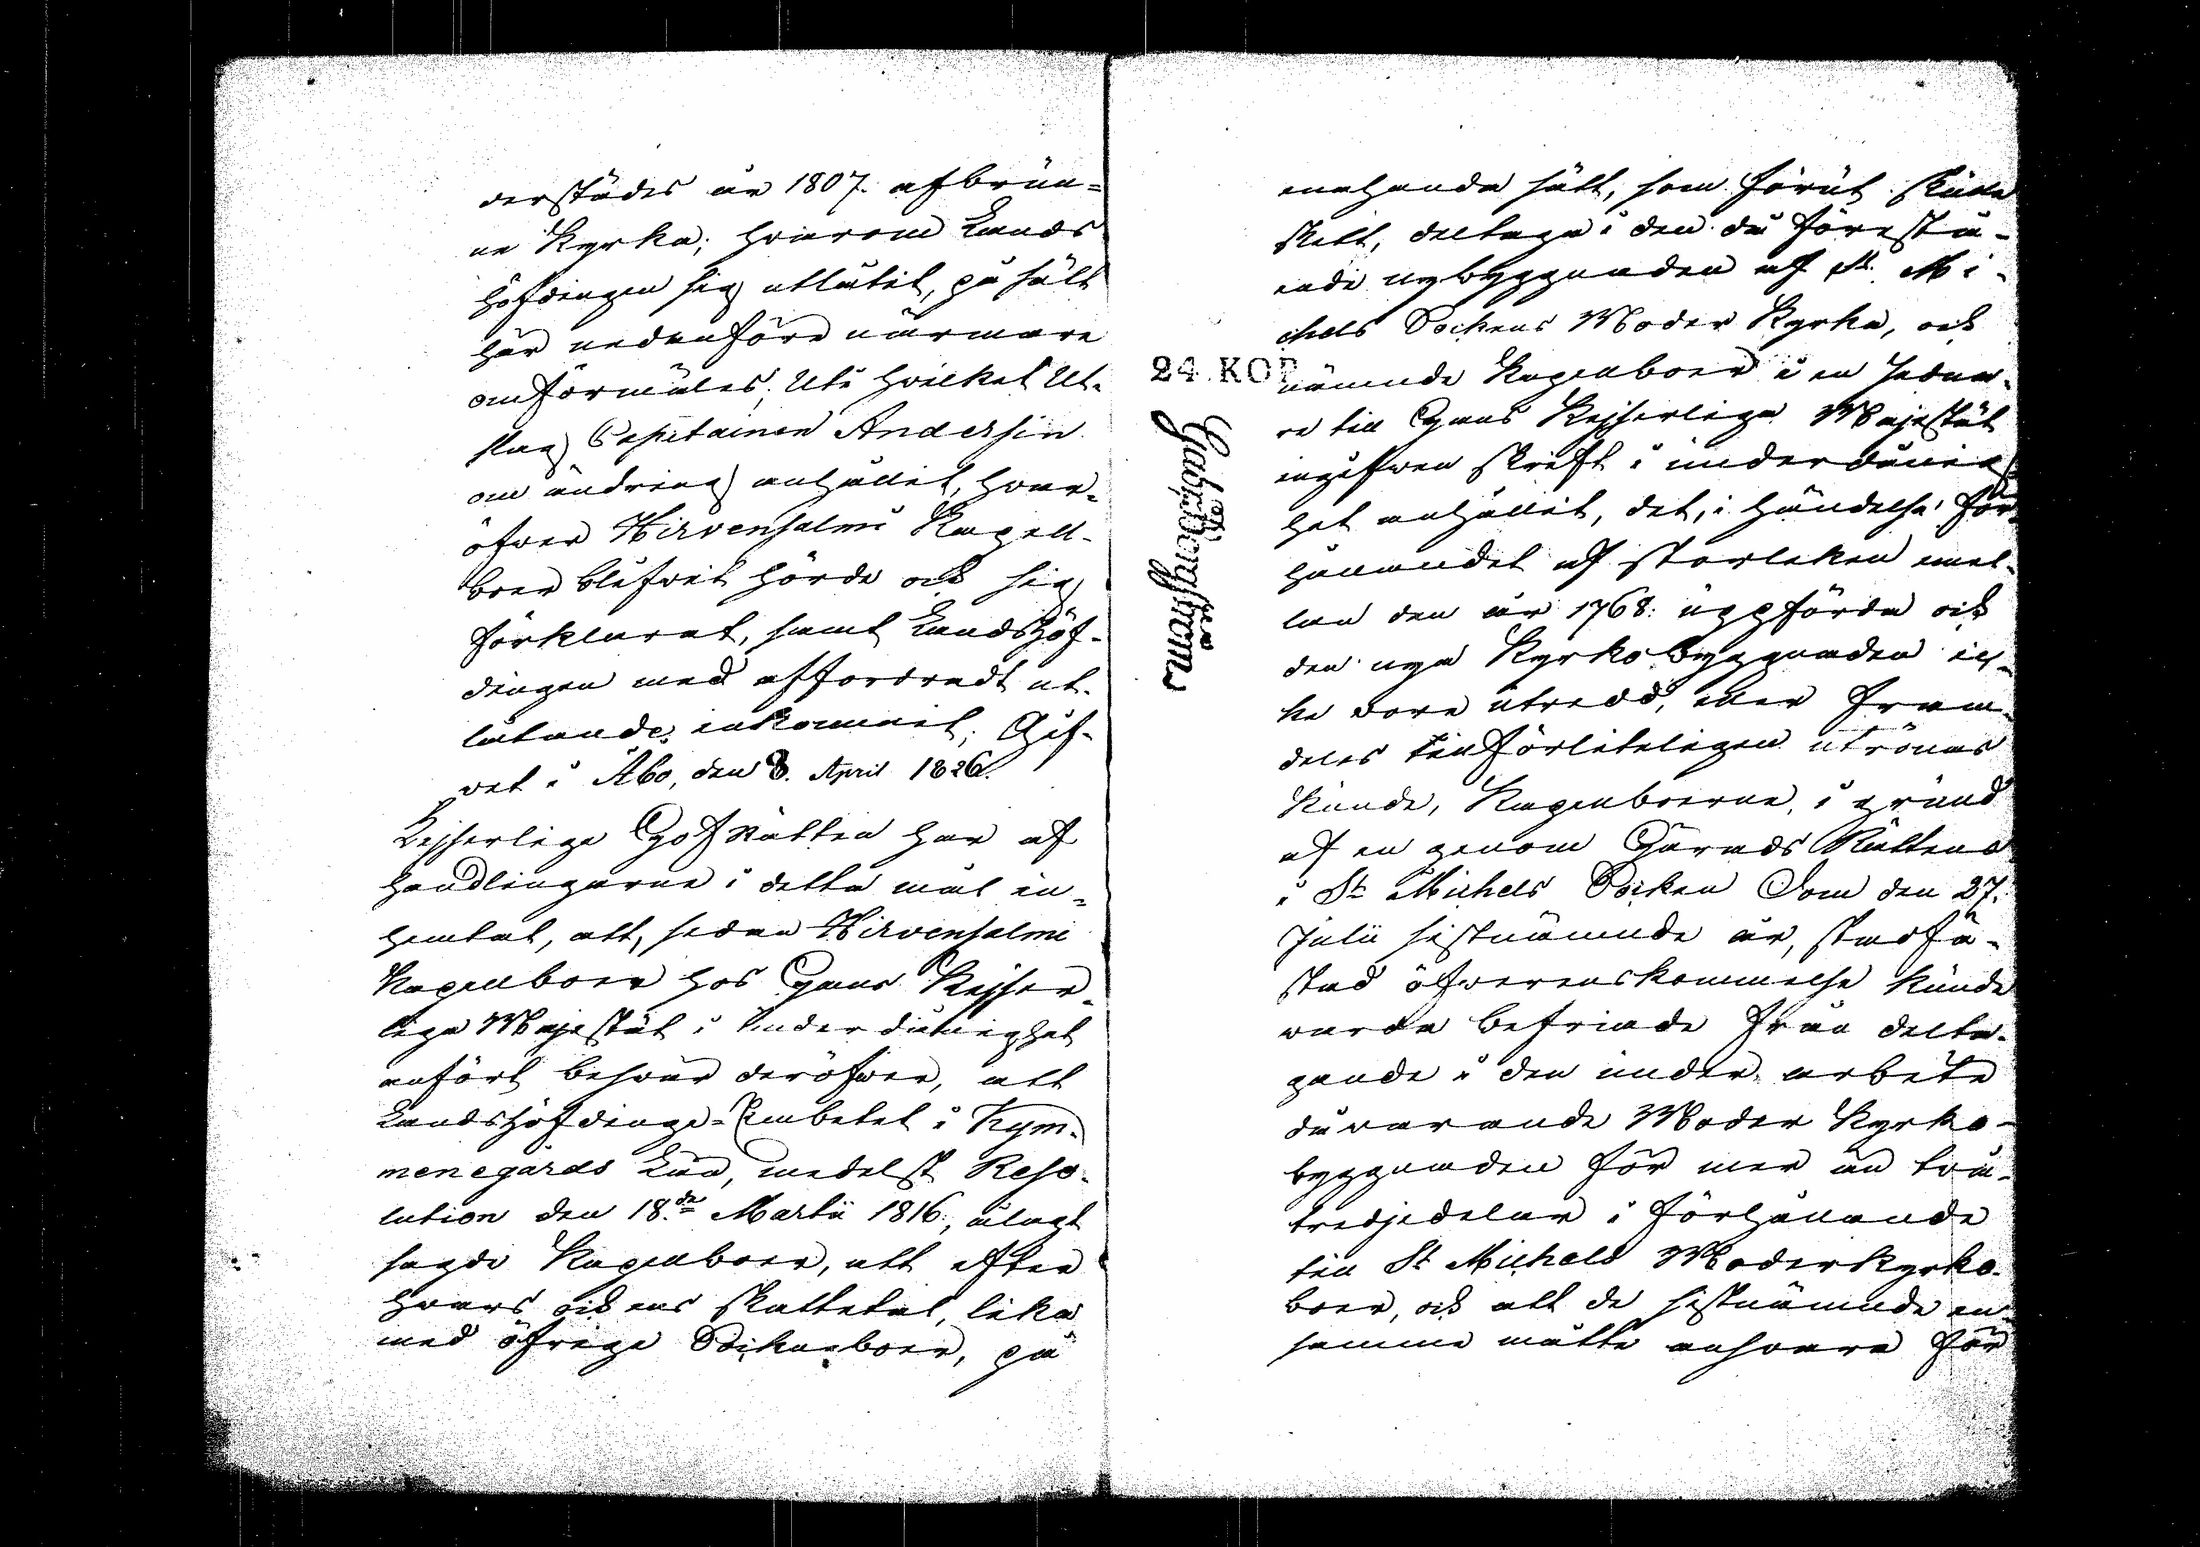 derstädes år 1807. afbrun-
ne Kyrka; hvarom Lands
höfdingen sig utlåtit, på sätt
här nedanföre närmare
omförmäles; Uti hvilket Ut-
slag Capitainen Andersin
om ändring anhållit, hvar-
öfver Hirvensalmi Kapell-
boer blifvit hörde och sig
förklarat, samt Landshöf-
dingen med affordradt ut-
låtande inkommit; Gif-
vet i Åbo, den 8. April 1826.
Kejserlige HofRätten har af
handlingarne i detta mål in-
hemtat, att, sedan Hirvensalmi
Kapellboer hos Hans Kejser-
liga Majestät i Underdånighet
anfört besvär deröfver, att
Landshöfdinge-Embetet i Kym-
menegårds Län, medelst Reso-
lution den 18.de Martii 1816, ålagt
sagde Kapellboer, att efter
hvars och ens skattetal, lika
med öfrige Sockneboer, på
24. KOP.
enahanda sätt, som förut skall
skett, deltaga i den då förestå-
ende nybyggnaden af St. Mi-
chels Sockens Moder Kyrka, och
nämnde Kapellboer i en sedna-
re till Hans Kejserliga Majestät
ingifven skrift i underdånig-
het anhållit, det, i händelse för-
hållandet af storleken emel-
lan den år 1768. uppförda och
den nya Kyrkobyggnaden ic-
ke vore utredd, eller fram-
deles tillförliteligen utrönas
kunde, Kapellboerne, i grund
af en genom Härads Rättens
i St. Michels Socken Dom den 27.
Julii sistnämnde år, stadfä-
stad öfverenskommelse kunde
varda befriade från delta-
gande i den under arbete
då varande Moder Kyrko-
byggnaden för mer än två-
tredjedelar i förhållande
till St Michels Moderkyrko-
boer, och att de sistnämnde en-
samme måtte ansvara för